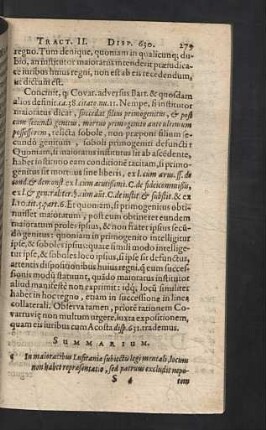 TRACT. II. DISP. 630. 279
regno. Tum denique, quoniam in qualicunq; du-
bio, an institutor maioratus intenderit præiudica-
re iuribus huius regni, non est ab eis recedendum,
ut dictum est.
Concinit, q Covar. adversus Bart. & quosdam
alios definit. ca. 38. citato nu. 11. Nempe, si institutor
maioratus dicat, succedat filius primogenitus, & post
eum secundò genitus, mortuo primogenito ante ultimum
possessorem, relicta sobole, non præponi filium se-
cundò genitum soboli primogeniti defuncti:
Quoniam, si maioratus institutus sit ab ascendente,
habet isto uno eam conditionẽ tacitam, si primo-
genitus sit mortuus sine liberis,
6. Et quoniam, si primogenitus obti-
nuisset maioratum, post eum obtineret eundem
maioratum proles ipsius, & non frater ipsius secũ-
dò genitus: quoniam in primogenito intelligitur
ipse, & soboles ipsius: quare simili modo intellige-
tur ipse, & soboles loco ipsius, si ipse sit defunctus,
attentis dispositionibus huius regni, q̃ eum successi-
onis modũ statuunt, quãdo maioratus institutor
aliud manifestè non exprimit: idq; locũ similiter
habet in hoc regno, etiam in successione in linea
collaterali. Observa tamen, priorẽ rationem Co-
varruviæ non multum urgere, iuxta expositionem,
quam eis iuribus cum Acosta disp. 625. trademus.
SUMMARIUM.
In maioratibus Lusitania subiectis legi mentali, locum
non habet repræsentatio, sed patruus excludit nepo-
S 4 tem